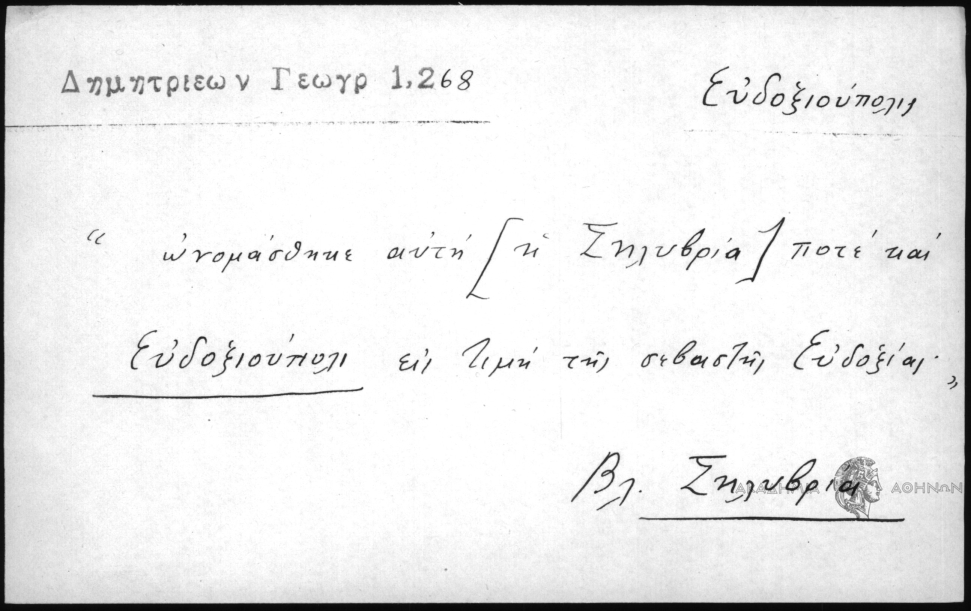 Δημητριεων Γεωγρ 1,268
Εὐδοξιούπολις
“ ὠνομάσθηκε αὐτή [ἡ Σηλυβρία] ποτέ καί
Εὐδοξιούπολι εἰς τιμή τῆς σεβαστῆς Εὐδοξίας. ”
Βλ. Σηλυβρία
ΑΚΑΔΗΜΙΑ ΑΘΗΝΩΝ